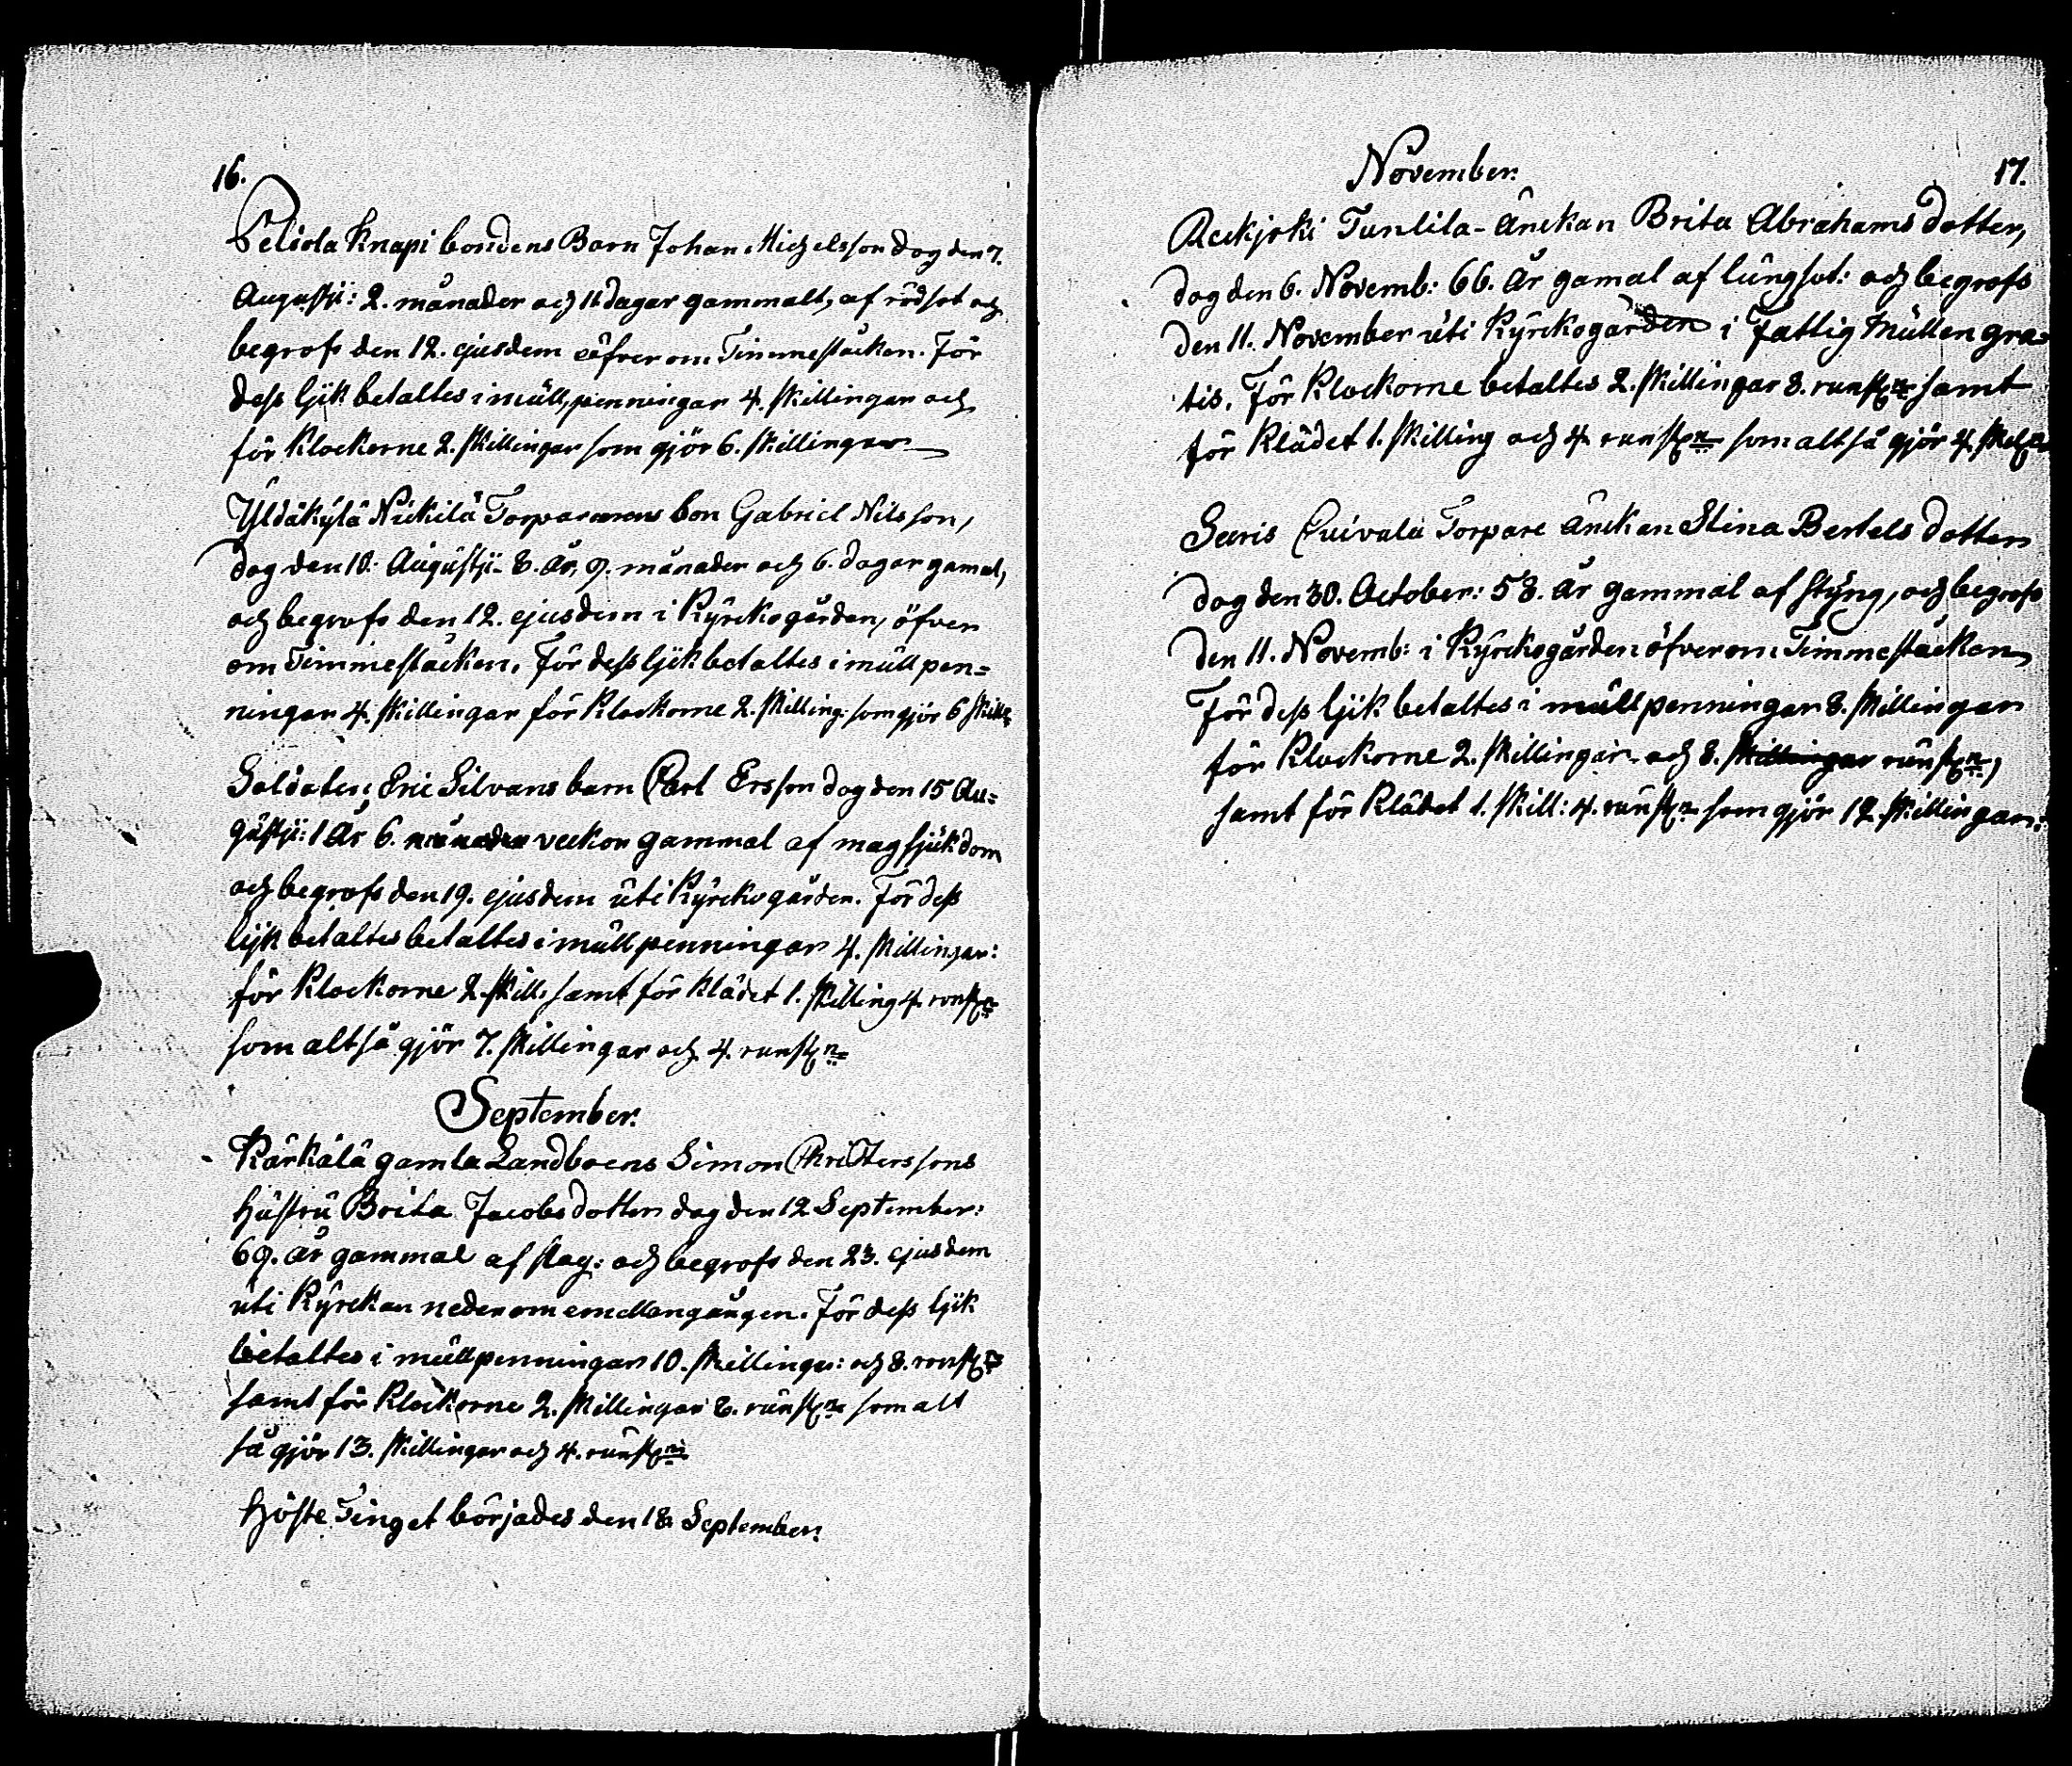 16.
Peldola Knapi bondens Barn Johan Michelsson dog den 7.
Augustji: 2. månader och 11 dagar gammalt, af rödsot och
begrofs den 12. ejusdem öfver om Timmestacken. För
dess lijk betaltes i mull,penningar 4. skillingar och
för Klockerne 2. skillingar som gjör 6. skillingar
Yldäkylä Nickilä Torparens son Gabriel Nilsson,
dog den 10. Augustji 8. År, 9. månader och 6. dagar gamal,
och begrofs den 12. ejusdem i Kyrckogården, öfver
om Timmestacken. För dess lijk betaltes i mull pen=
ningar 4. skillingar för Klockorne 2. skilling: som gjör 6 skill
Soldaten Eric Silvans barn Carl Ersson dog den 15 Au=
gustji: 1 År 6. månader veckor gammal af magsjukdom
och begrofs den 19. ejusdem uti Kyrckogården. För dess
lijk betaltes betaltes i mull penningar 4. skillingar:
för Klockorne 2. skill: samt för klädet 1. skilling 4. runst:n
som altså gjör 7. skillingar och 4. runst:n
September.
Kärkälä gamla Landboens Simon Christerssons
hustru Brita Jacobsdotter dog den 12 September:
69. år gammal af slag: och begrofs den 23. ejusdem
uti Kyrckan neder om emellangången. För dess lijk
betaltes i mullpenningar 10. skillingar: och 8. runst:n
samt för Klockorne 2. skillingar 8. runst:n som alt
så gjör 13. skillingar och 4. runst:n
Höste Tinget börjades den 18 September.
November.
17.
Reckjoki Tunlila - Änckan Brita Abrahams dotter,
dog den 6. Novemb: 66. År gamal af lungsot: och begrofs
den 11. November uti Kyrckogården i Fattig Mullen gra=
tis. För Klockorne betaltes 2. skillingar 8. runst:n samt
för Klädet 1. skilling och 4. runst:n som altså gjör 4. skill
Saris Cuivala Torpare Änckan Stina Bertels dotter
dog den 30. October: 58. år gammal af styng, och begrofs
den 11. Novemb: i Kyrckogården öfver om Timmestacken
För dess lijk betaltes i mullpenningar 8. skillingar
för Klockorne 2. skillingar och 8. skillingar runst:n,
samt för Klädet 1. skill: 4. runst:n som gjör 12. skillingar: